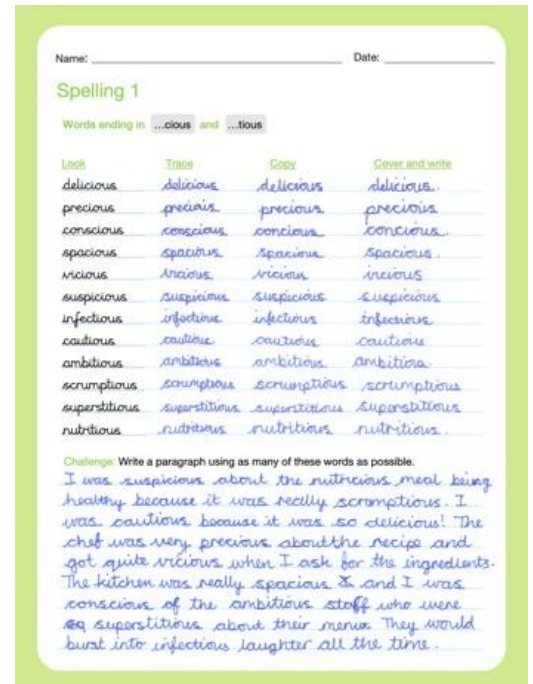 Name: Date:
Spelling 1
Words ending in ...cious and ...tious
Look Trace Copy Cover and write
delicious delicious delicious delicious.
precious precious precious precious
conscious conscious concious concious.
spacious spacious spacious spacious.
vicious vicious vicious vicious
suspicious suspicious suspicious suspicious
infectious infectious infectious infectious
cautious cautious cautious cautious
ambitious ambitious ambitious ambitious.
scrumptious scrumptious scrumptious scrumptious
superstitious superstitious superstitious superstitious
nutritious nutritious nutritious nutritious.
Challenge: Write a paragraph using as many of these words as possible.
I was suspicious about the nutricious meal being
healthy because it was really scromptious. I
was cautious because it was so delicious! The
chef was very precious about the recipe and
got quite vicious when I ask for the ingredients.
The kitchen was really spacious and I was
conscious of the ambitious staff who were
superstitious about their menus They would
burst into infectious laughter all the time.